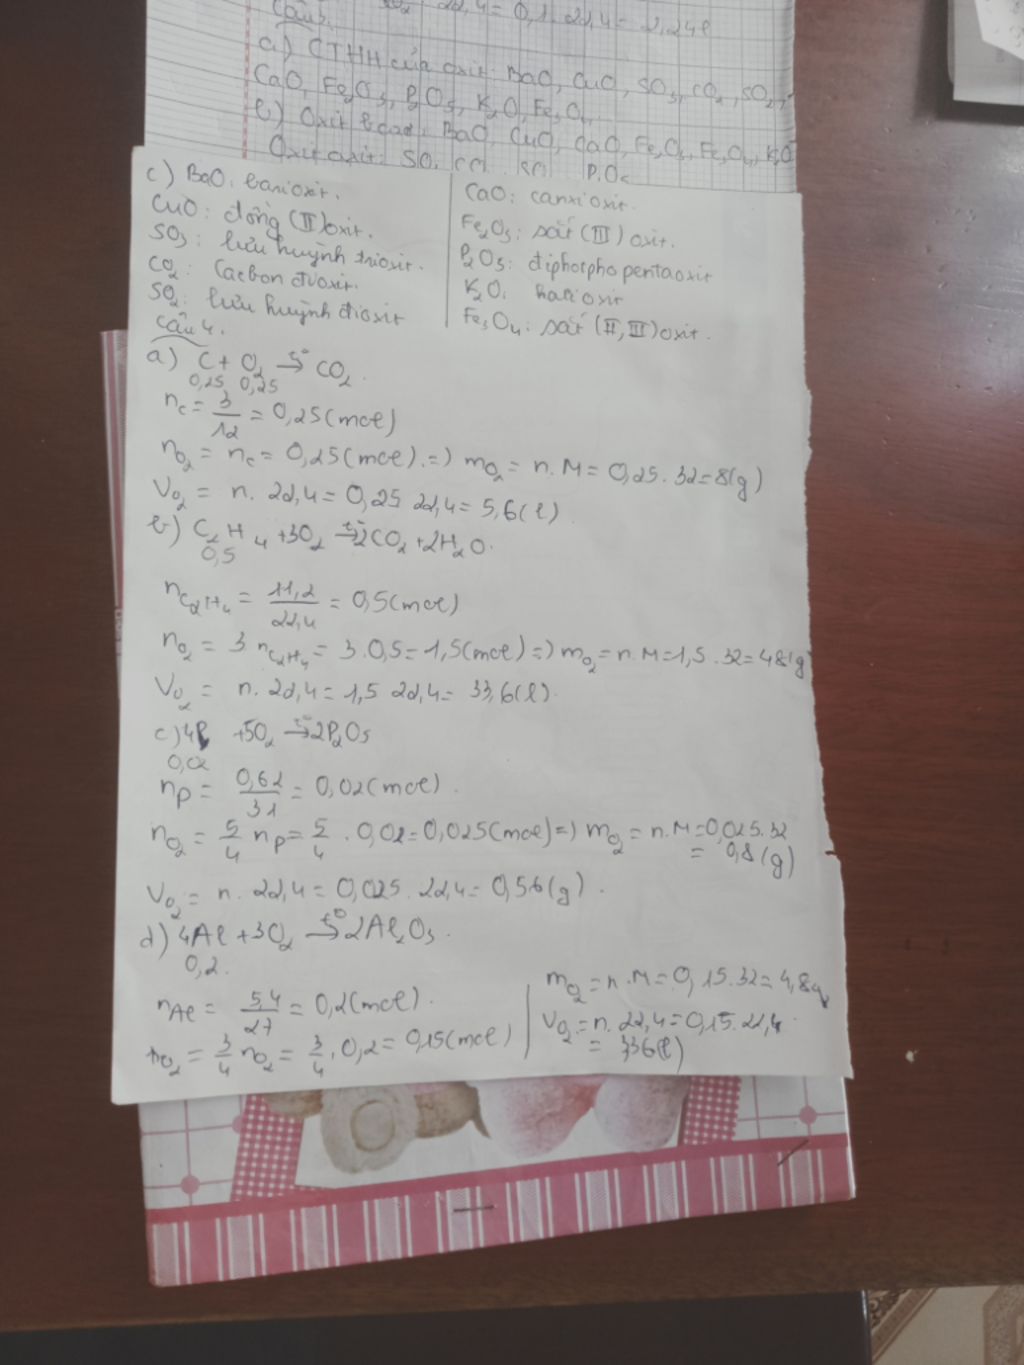 Câu 3.
nO₂ . 22,4 = 0,1 . 22,4 = 2,24l
a) CTHH của oxit: BaO, CuO, SO₃, CO₂, SO₂,
CaO, Fe₂O₃, P₂O₅, K₂O, Fe₃O₄
b) Oxit bazơ: BaO, CuO, CaO, Fe₂O₃, Fe₃O₄, K₂O
Oxit axit: SO₃ CO₂ SO₂ P₂O₅
c) BaO: bari oxit.
CuO: đồng (II) oxit.
SO₃: lưu huỳnh trioxit.
CO₂: Cacbon đioxit.
SO₂: lưu huỳnh đioxit
CaO: canxi oxit.
Fe₂O₃: sắt (III) oxit.
P₂O₅: điphotpho pentaoxit
K₂O: kali oxit
Fe₃O₄: sắt (II, III) oxit.
Câu 4.
a) C + O₂ →t° CO₂.
0,25 0,25
nC = 3/12 = 0,25 (mol)
nO₂ = nC = 0,25 (mol). =) mO₂ = n. M = 0,25. 32 = 8(g)
VO₂ = n. 22,4 = 0,25 22,4 = 5,6 (l)
b) C₂H₄ + 3O₂ →t° 2CO₂ + 2H₂O.
0,5
nC₂H₄ = 11,2/22,4 = 0,5 (mol)
nO₂ = 3 nC₂H₄ = 3 . 0,5 = 1,5 (mol) =) mO₂ = n. M = 1,5 . 32 = 48(g
VO₂ = n. 22,4 = 1,5 22,4 = 33,6 (l).
c) 4P + 5O₂ →t° 2P₂O₅
0,02
nP = 0,62/31 = 0,02 (mol).
nO₂ = 5/4 nP = 5/4 . 0,02 = 0,025 (mol) =) mO₂ = n. M = 0,025. 32
= 0,8 (g)
VO₂ = n. 22,4 = 0,025 . 22,4 = 0,56 (g).
d) 4Al + 3O₂ →t° 2Al₂O₃.
0,2.
nAl = 5,4/27 = 0,2 (mol).
nO₂ = 3/4 nO₂ = 3/4 . 0,2 = 0,15 (mol)
mO₂ = n. M = 0,15. 32 = 4,8g
VO₂ = n. 22,4 = 0,15. 22,4
= 3,36 (l)